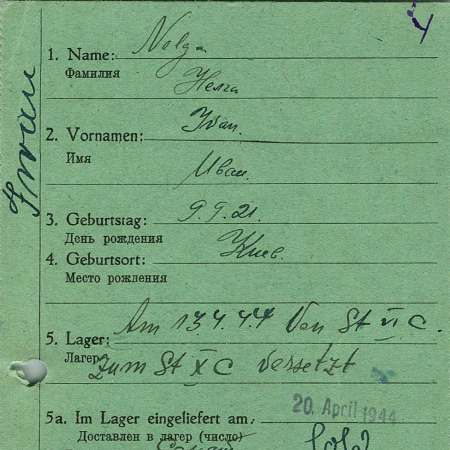 1. Name: Nelga
Фамилия Нелга
2. Vornamen: Ivan.
Имя
Иван.
Iwan
3. Geburtstag: 9.9.21.
День рождения
4. Geburtsort: Kiev.
Место рождения
5. Lager: Am 13.4.44 Von St VI C.
Лагерь Zum St X C versetzt
5a. Im Lager eingeliefert am: 20. April 1944
Доставлен в лагерь (число)